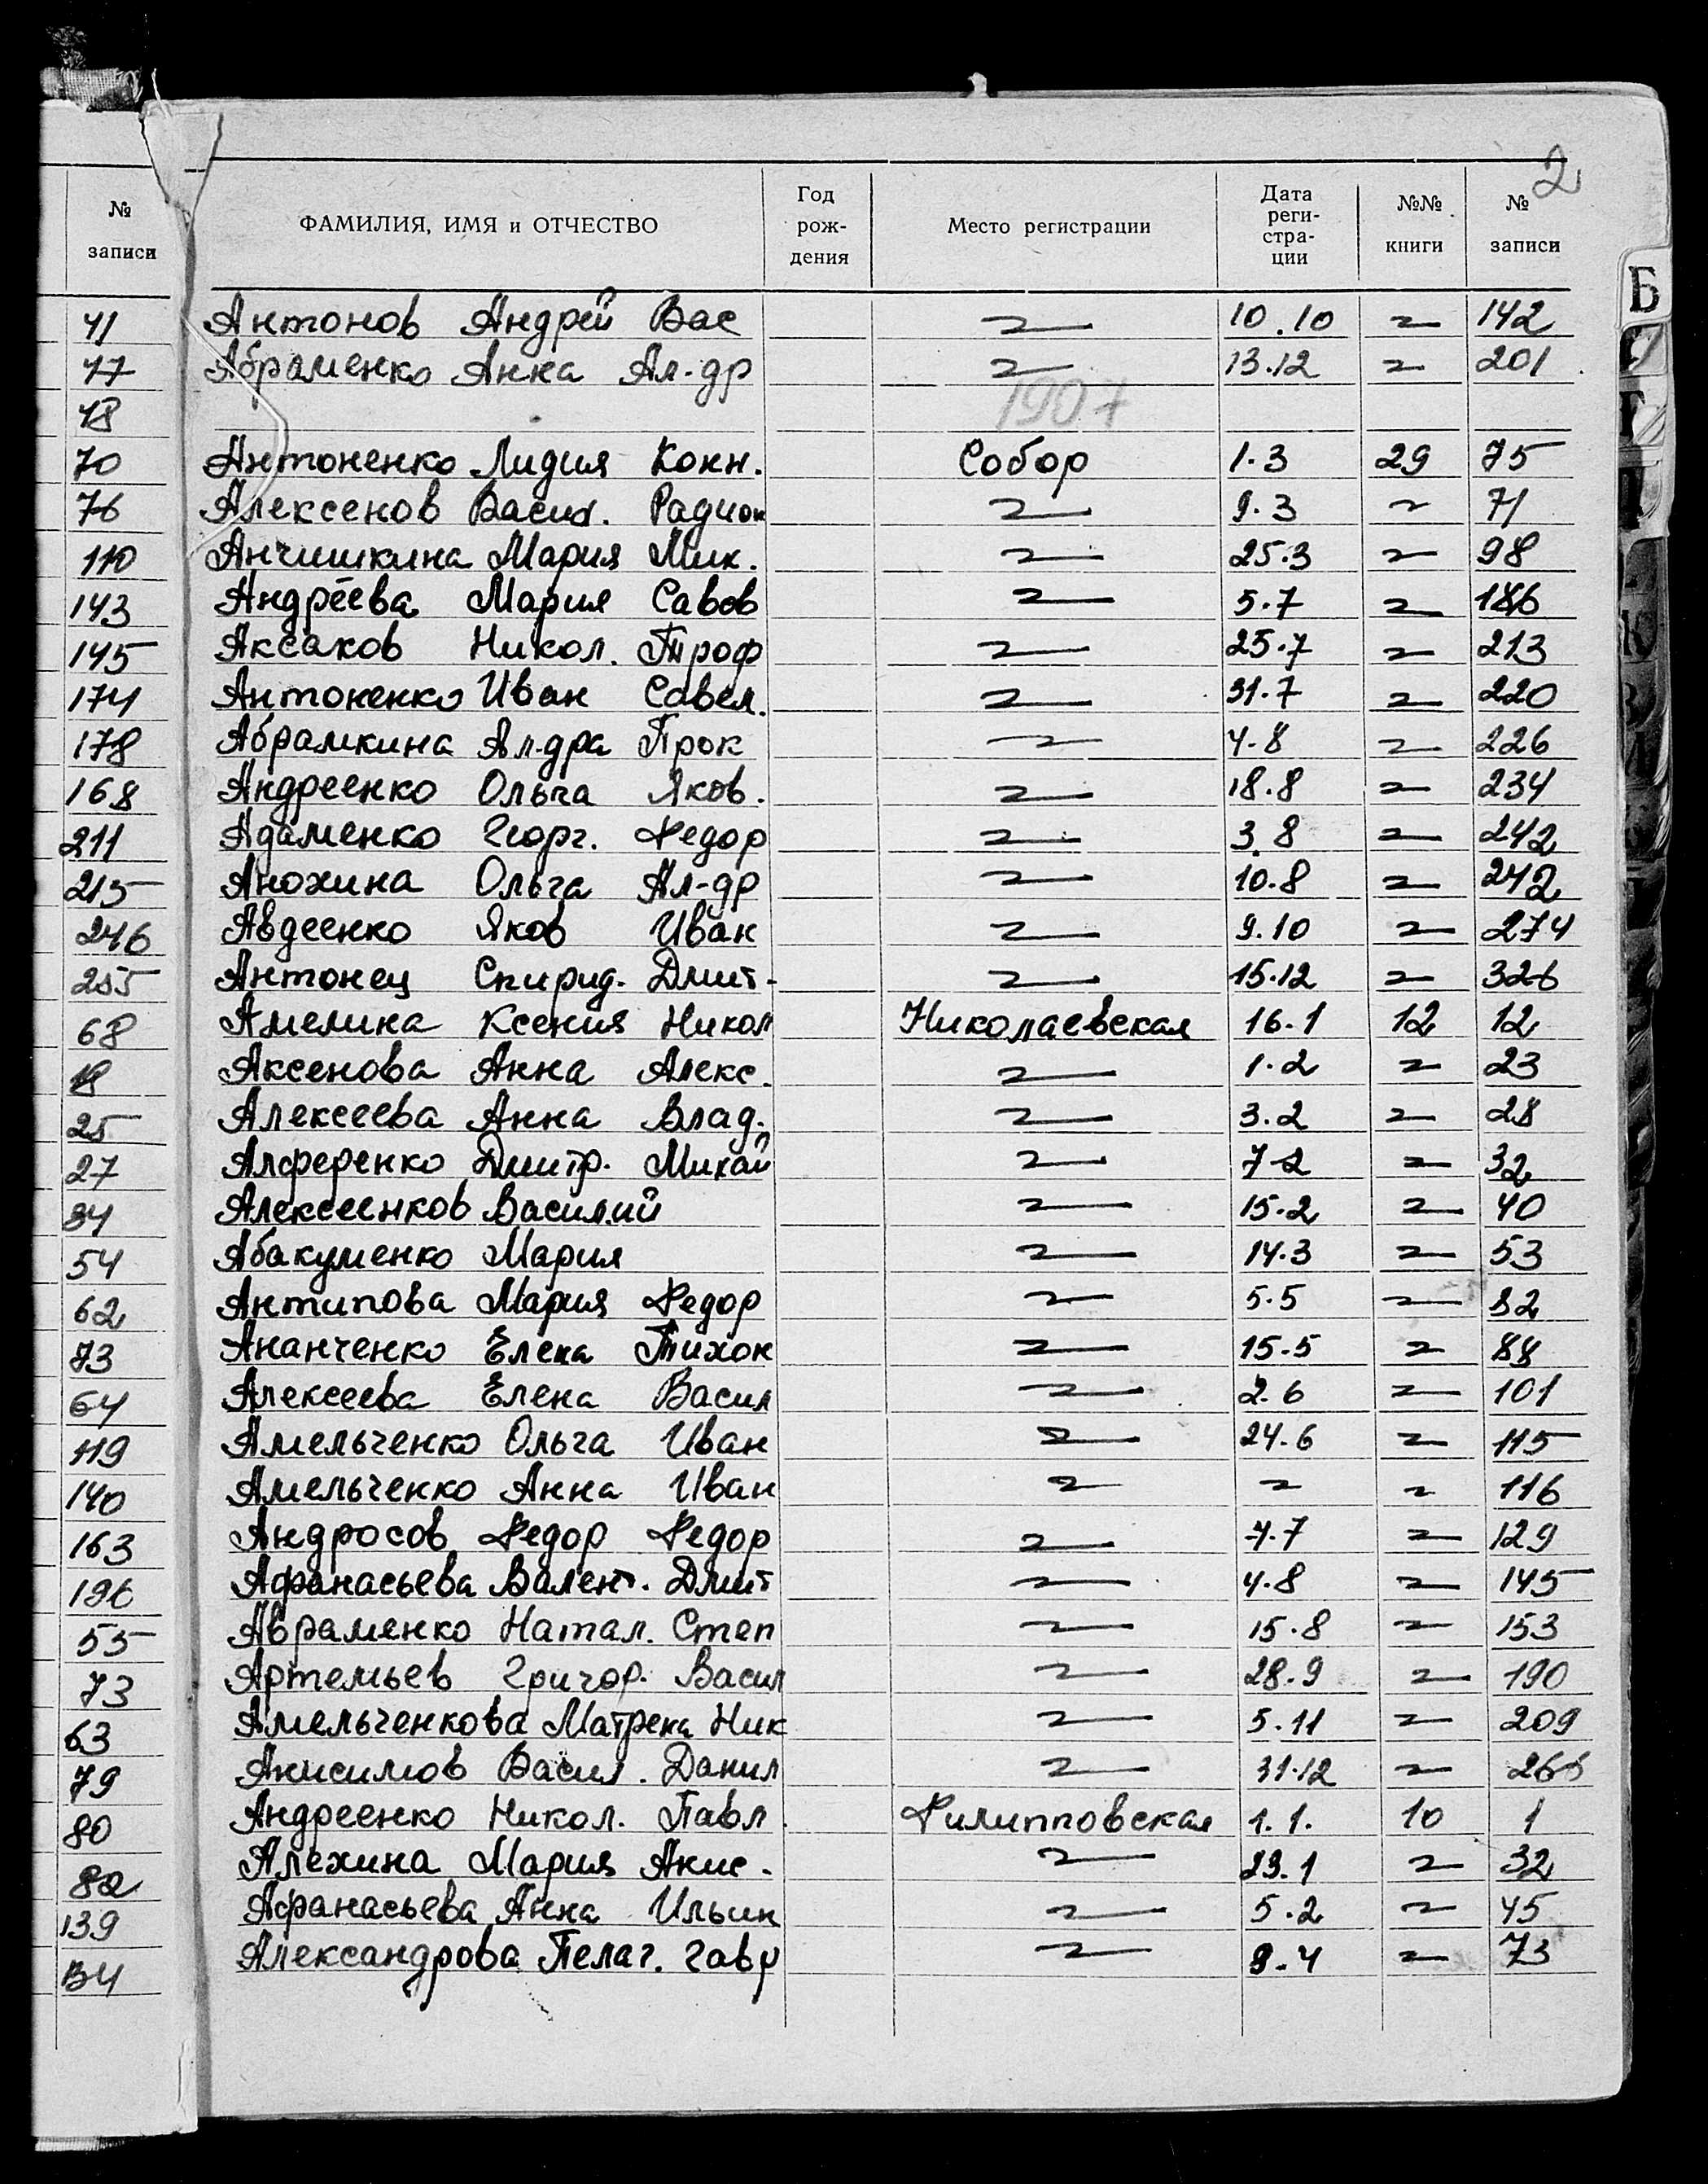 2
№ записи ФАМИЛИЯ, ИМЯ и ОТЧЕСТВО Год рож- дения Место регистрации Дата реги- стра- ции №№ книги № записи
Б
41 Антонов Андрей Вас 〃 10.10 〃 142
47 Абраменко Анна Ал-др 〃 13.12 〃 201
48 1907
70 Антоненко Лидия Конн. Собор 1.3 29 75
76 Алексенов Васил. Радион 〃 9.3 〃 71
110 Анчишкина Мария Мик. 〃 25.3 〃 98
143 Андреева Мария Савов 〃 5.7 〃 186
145 Аксаков Никол. Троф 〃 25.7 〃 213
174 Антоненко Иван Савел. 〃 31.7 〃 220
178 Абрамкина Ал-дра Прок 〃 4.8 〃 226
168 Андреенко Ольга Яков. 〃 18.8 〃 234
211 Адаменко Георг. Федор 〃 3.8 〃 242
215 Анохина Ольга Ал-др 〃 10.8 〃 242
246 Авдеенко Яков Иван 〃 9.10 〃 274
255 Антонец Спирид. Дмит. 〃 15.12 〃 326
68 Амелина Ксения Никол Николаевская 16.1 12 12
18 Аксенова Анна Алекс. 〃 1.2 〃 23
25 Алексеева Анна Влад. 〃 3.2 〃 28
27 Алференко Дмитр. Михай 〃 7-2 〃 32
34 Алексеенков Василий 〃 15.2 〃 40
54 Абакуменко Мария 〃 14.3 〃 53
62 Антипова Мария Федор 〃 5.5 〃 82
73 Ананченко Елена Тихон 〃 15.5 〃 88
64 Алексеева Елена Васил 〃 2.6 〃 101
119 Амельченко Ольга Иван 〃 24.6 〃 115
140 Амельченко Анна Иван 〃 〃 〃 116
163 Андросов Федор Федор 〃 4.7 〃 129
196 Афанасьева Валент. Дмит 〃 4.8 〃 145
55 Авраменко Натал. Степ 〃 15.8 〃 153
73 Артемьев Григор. Васил 〃 28.9 〃 190
63 Амельченкова Матрена Ник 〃 5.11 〃 209
79 Анисимов Васил. Данил 〃 31.12 〃
80 Андреенко Никол. Павл. Филипповская 1.1. 10 1
82 Алехина Мария Акис. 〃 23.1 〃 32
139 Афанасьева Анна Ильин 〃 5.2 〃 45
134 Александрова Пелаг. Гавр 〃 9.4 〃 73